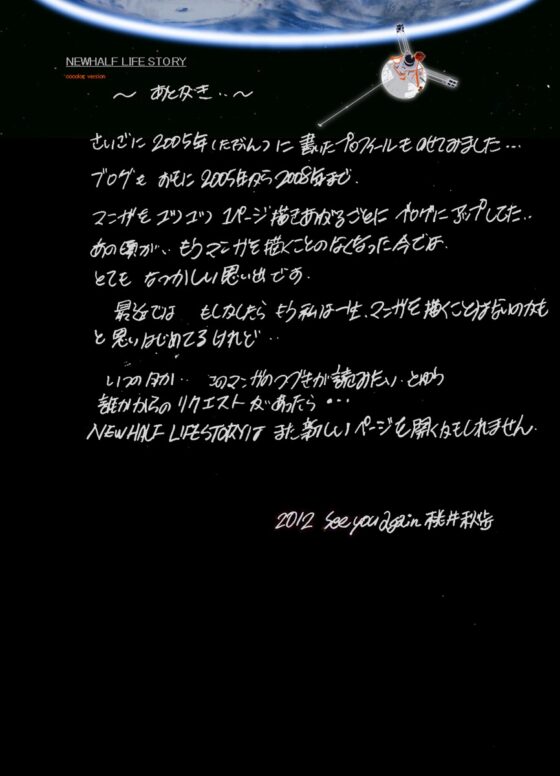 NEWHALF LIFE STORY
cocolog version
～ あとがき‥～
さいごに 2005年(たぶん)に 書いたプロフィールも のせてみました…
ブログも おもに2005年から2008年まで.
マンガを コツコツ 1ページ描きあがるごとに ブログに アップしてた‥
あの頃が‥ もうマンガを描くことのなくなった今では.
とても なつかしい思い出です.
最近では もしかしたら もう私は一生、マンガを描くことはないのかも
と思いはじめてるけれど‥
いつの日か‥ このマンガのつづきが読みたい‥とゆう
誰かからの リクエストがあったら・・・
NEWHALF LIFESTORYは また新しいページを開くかもしれません.
2012 See you again 桃井秋歩